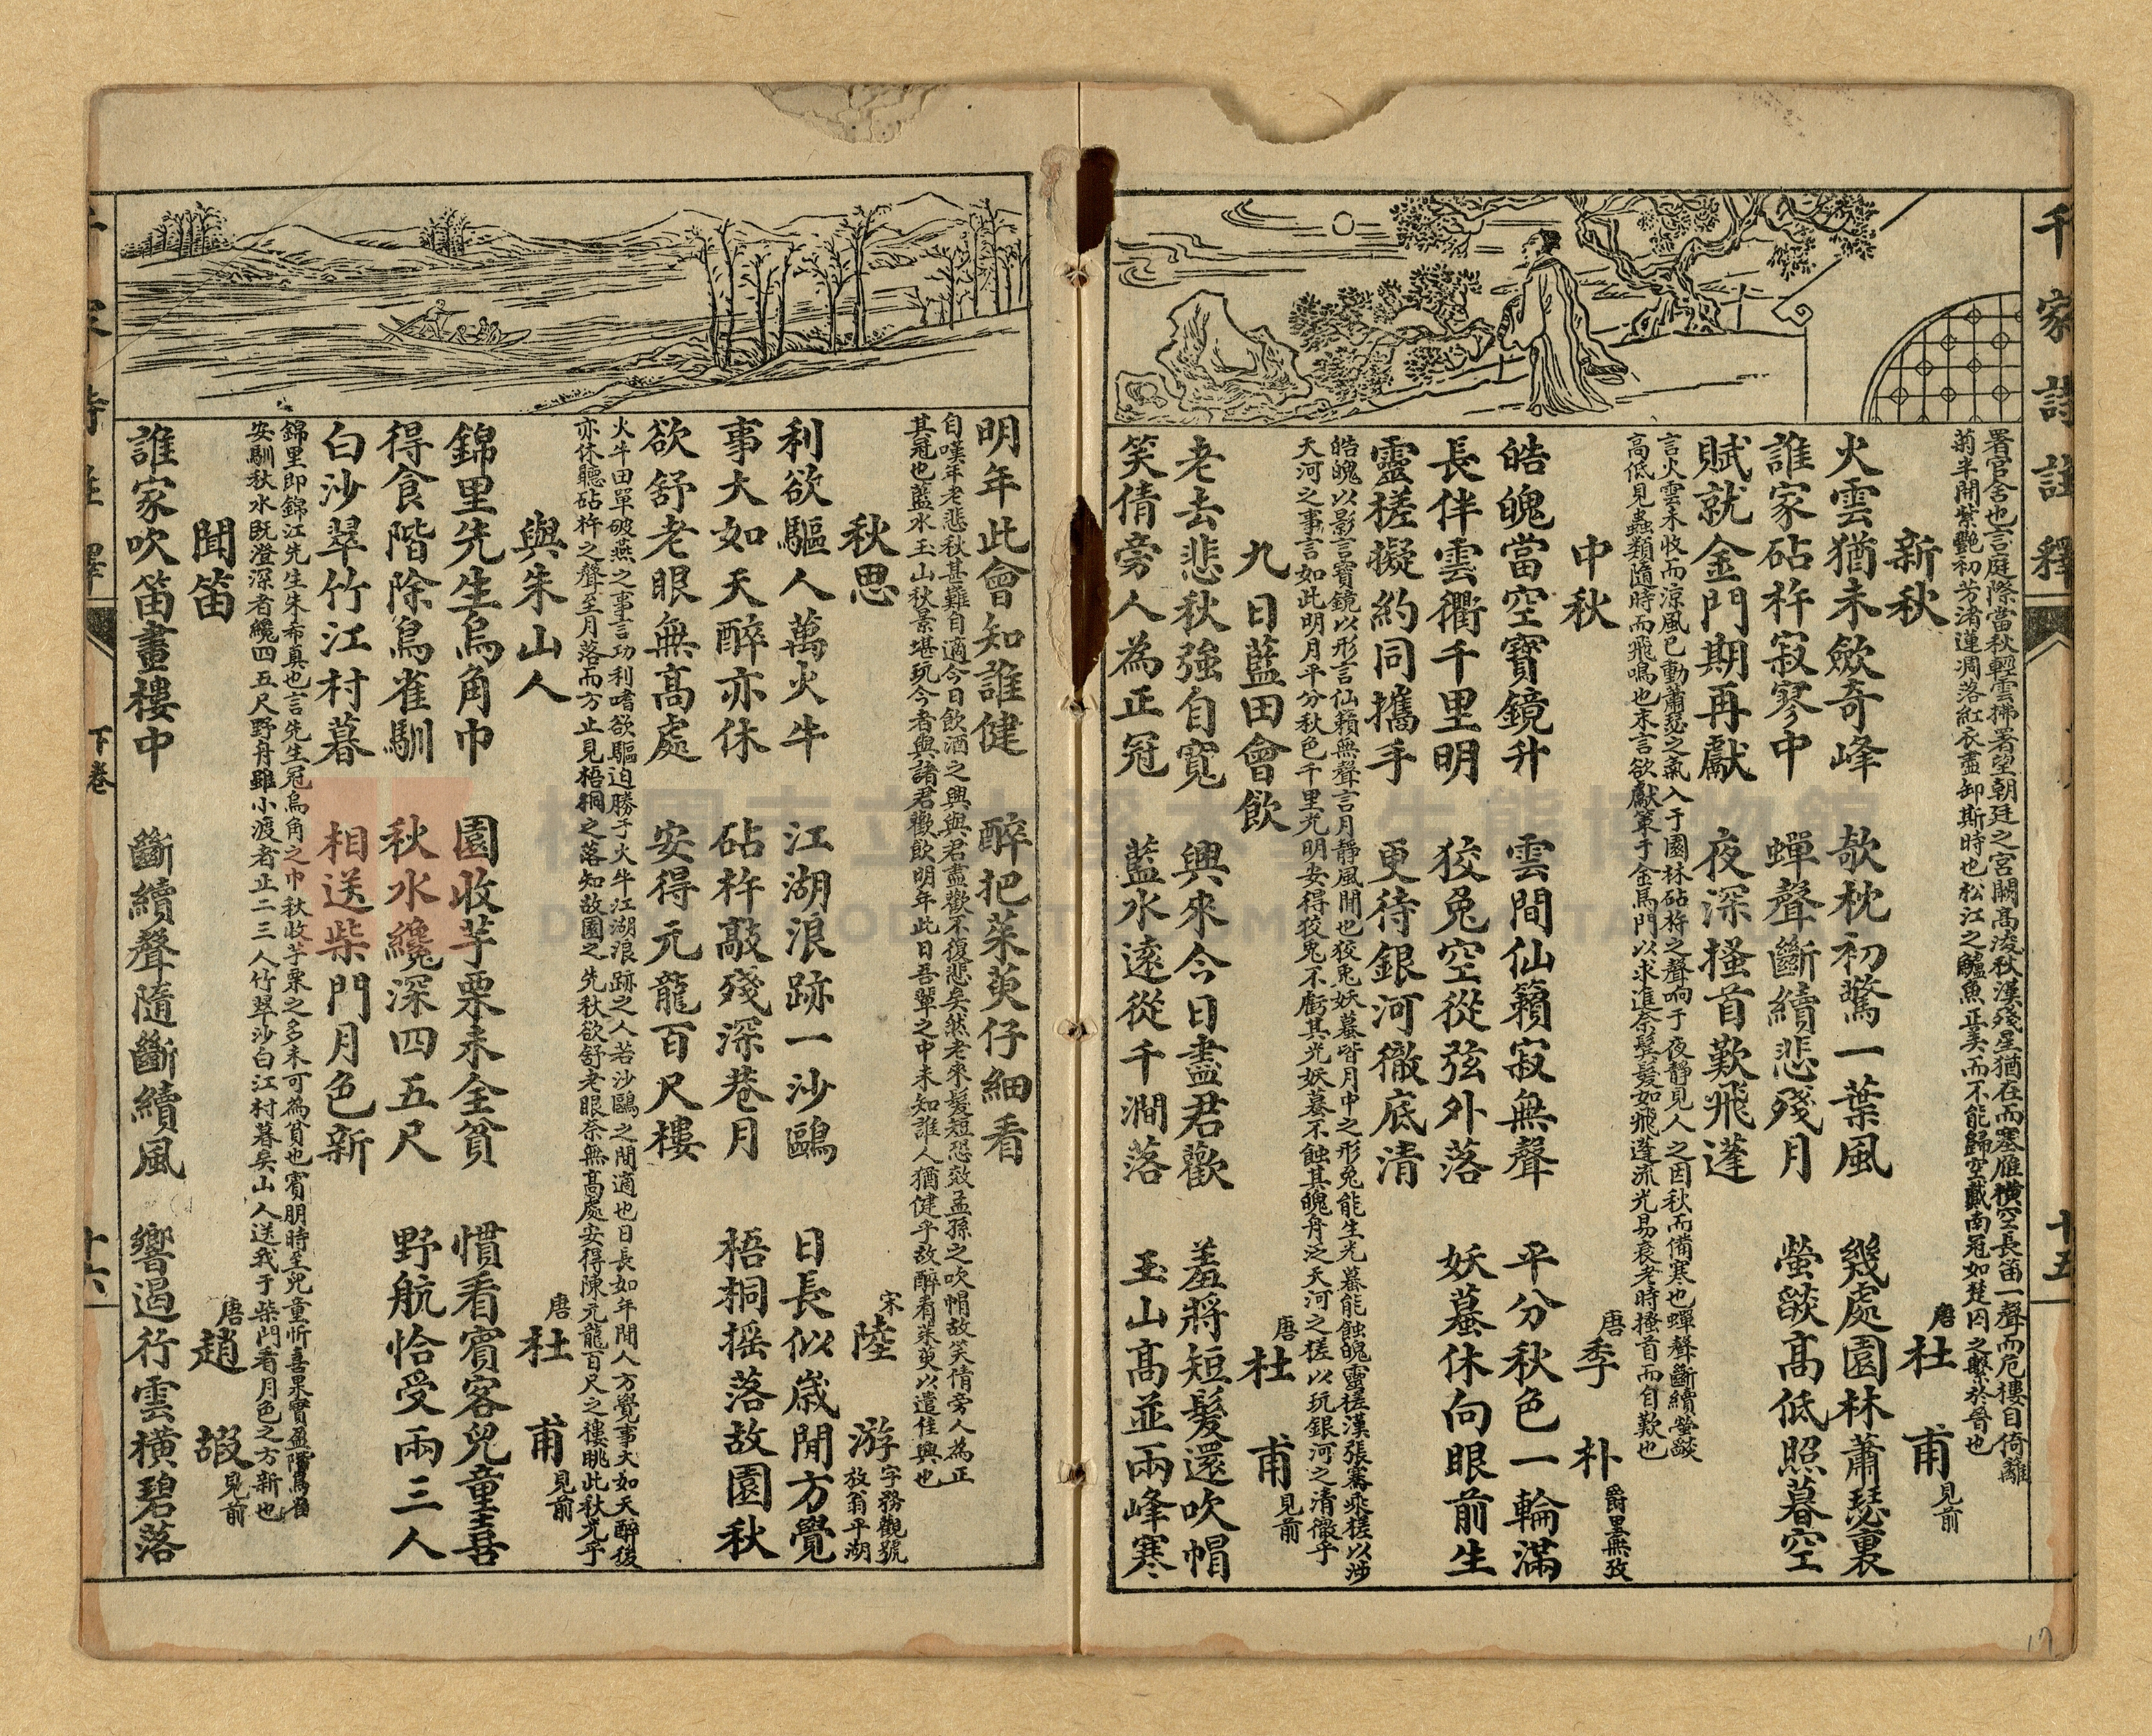 千家詩註釋
十五
署官舍也言庭際當秋輕雲拂署望朝廷之宮闕高淩秋漢殘星猶在而塞雁橫空長笛一聲而危樓自倚離
菊半開紫艷初芳渚蓮凋落紅衣盡卸斯時也松江之鱸魚正美而不能歸空戴南冠如楚囚之繫於晉也
新秋 唐杜甫見前
火雲猶未歛奇峰 欹枕初驚一葉風 幾處園林蕭瑟裏
誰家砧杵寂寥中 蟬聲斷續悲殘月 螢燄高低照暮空
賦就金門期再獻 夜深搔首歎飛蓬
言火雲未收而涼風已動蕭瑟之氣入于園林砧杵之聲响于夜靜見人之因秋而備寒也蟬聲斷續螢燄
高低見蟲類隨時而飛鳴也末言欲獻策于金馬門以求進奈鬓髮如飛蓬流光易衰老時搔首而自歎也
中秋 唐季朴爵里無攷
皓魄當空寶鏡升 雲間仙籟寂無聲 平分秋色一輪滿
長伴雲衢千里明 狡兔空從弦外落 妖蟇休向眼前生
靈槎擬約同攜手 更待銀河徹底清
皓魄以影言寶鏡以形言仙籟無聲言月靜風閒也狡兎妖蟇皆月中之形兔能生光蟇能蝕魄靈槎漢張騫乘槎以涉
天河之事言如此明月平分秋色千里光明安得狡兔不虧其光妖蟇不蝕其魄舟泛天河之槎以玩銀河之清徹乎
九日藍田會飲 唐杜甫見前
老去悲秋強自寬 興來今日盡君歡 羞將短髮還吹帽
笑倩旁人為正冠 藍水遠從千澗落 玉山高並兩峰寒
明年此會知誰健 醉把茱萸仔細看
自嘆年老悲秋甚難自適今日飲酒之興與君盡歡不復悲矣然老來髮短恐效孟孫之吹帽故笑倩旁人為正
其冠也藍水玉山秋景堪玩今者與諸君歡飲明年此日吾輩之中未知誰人猶健乎故醉看茱萸以遣佳興也
秋思 宋陸游字務觀號放翁平湖
利欲驅人萬火牛 江湖浪跡一沙鷗 日長似歲閒方覺
事大如天醉亦休 砧杵敲殘深巷月 梧桐搖落故園秋
欲舒老眼無高處 安得元龍百尺樓
火牛田單破燕之事言功利嗜欲驅迫勝于火牛江湖浪跡之人若沙鷗之閒適也日長如年閒人方覺事大如天醉後
亦休聽砧杵之聲至月落而方止見梧桐之落知故園之先秋欲舒老眼奈無高處安得陳元龍百尺之樓眺此秋光乎
與朱山人 唐杜甫見前
錦里先生烏角巾 園收芋栗未全貧 慣看賓客兒童喜
得食階除鳥雀馴 秋水纔深四五尺 野航恰受兩三人
白沙翠竹江村暮 相送柴門月色新
錦里即錦江先生朱希真也言先生冠烏角之巾秋收芋栗之多未可為貧也賓朋時至兒童忻喜果實盈階鳥雀
安馴秋水既澄深者纔四五尺野舟雖小渡者止二三人竹翠沙白江村暮矣山人送我于柴門看月色之方新也
聞笛 唐趙嘏見前
誰家吹笛畫樓中 斷續聲隨斷續風 響遏行雲橫碧落
下卷
十六